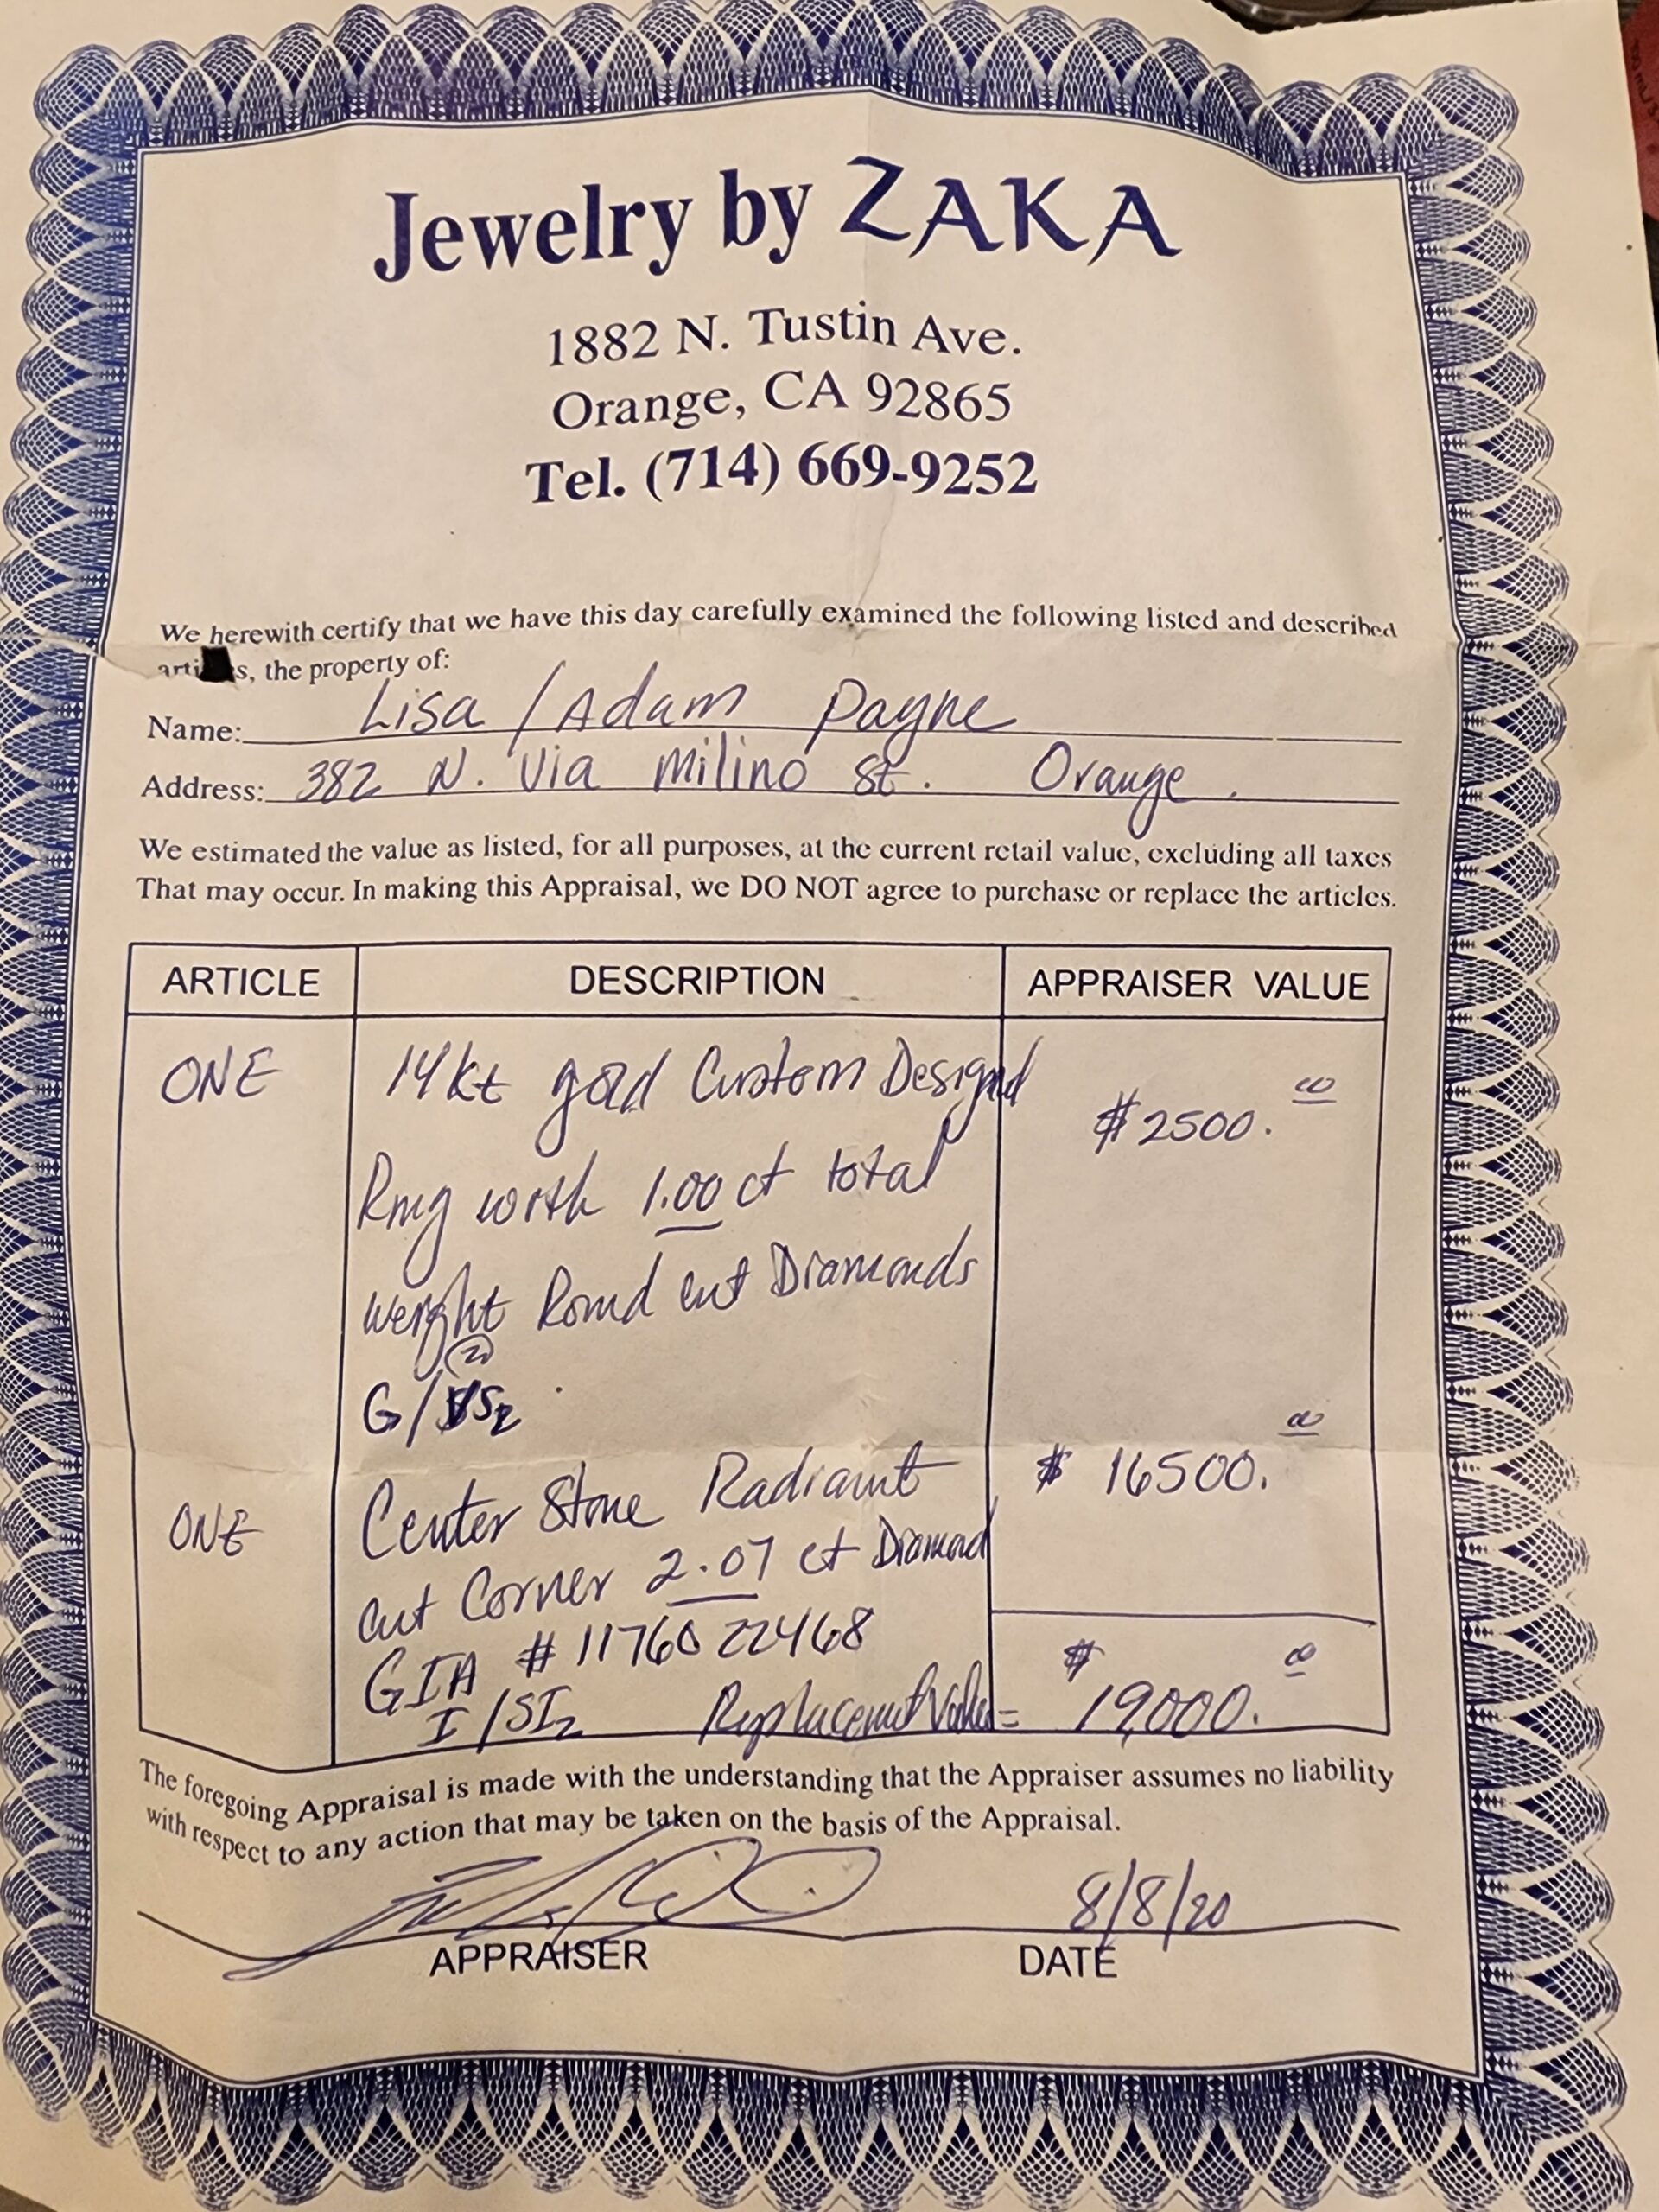 Jewelry by ZAKA
1882 N. Tustin Ave.
Orange, CA 92865
Tel. (714) 669-9252
We herewith certify that we have this day carefully examined the following listed and described
arti s, the property of:
Name: Lisa / Adam Payne
Address: 382 N. Via Milino St. Orange.
We estimated the value as listed, for all purposes, at the current retail value, excluding all taxes
That may occur. In making this Appraisal, we DO NOT agree to purchase or replace the articles.
ARTICLE DESCRIPTION APPRAISER VALUE
ONE 14kt gold Custom Designed $2500.00
Ring with 1.00 ct total
weight Round cut Diamonds
G/VS2
ONE Center Stone Radiant $ 16500.00
cut Corner 2.07 ct Diamond
GIA # 1176022468
I/SI2 Replacement Value = $ 19,000.00
The foregoing Appraisal is made with the understanding that the Appraiser assumes no liability
with respect to any action that may be taken on the basis of the Appraisal.
8/8/20
APPRAISER DATE